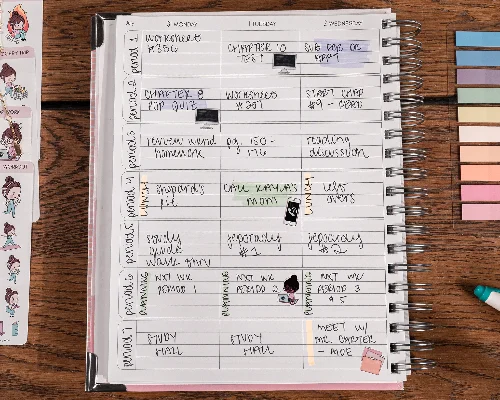 MONDAY TUESDAY WEDNESDAY
period 1
WORKSHEET
#356
CHAPTER 10
TEST
period 2
CHAPTER 8
POP QUIZ
WORKSHEET
#357
START CHAP
#9 -
period 3
review wkend
homework
pg. 150-
176
reading
discussion
period 4
LUNCH
shepard's
pie
CALL KAYLA'S
MOM
LUNCH
left
overs
period 5
study
guide
walk thru
jeopardy
#1
jeopardy
#2
period 6
PLANNING
NXT WK
PERIOD 1
PLANNING
NXT WK
PERIOD 2
PLANNING
NXT WK
PERIOD 3
& 5
period 7
STUDY
HALL
STUDY
HALL
MEET W/
MR. CARTER